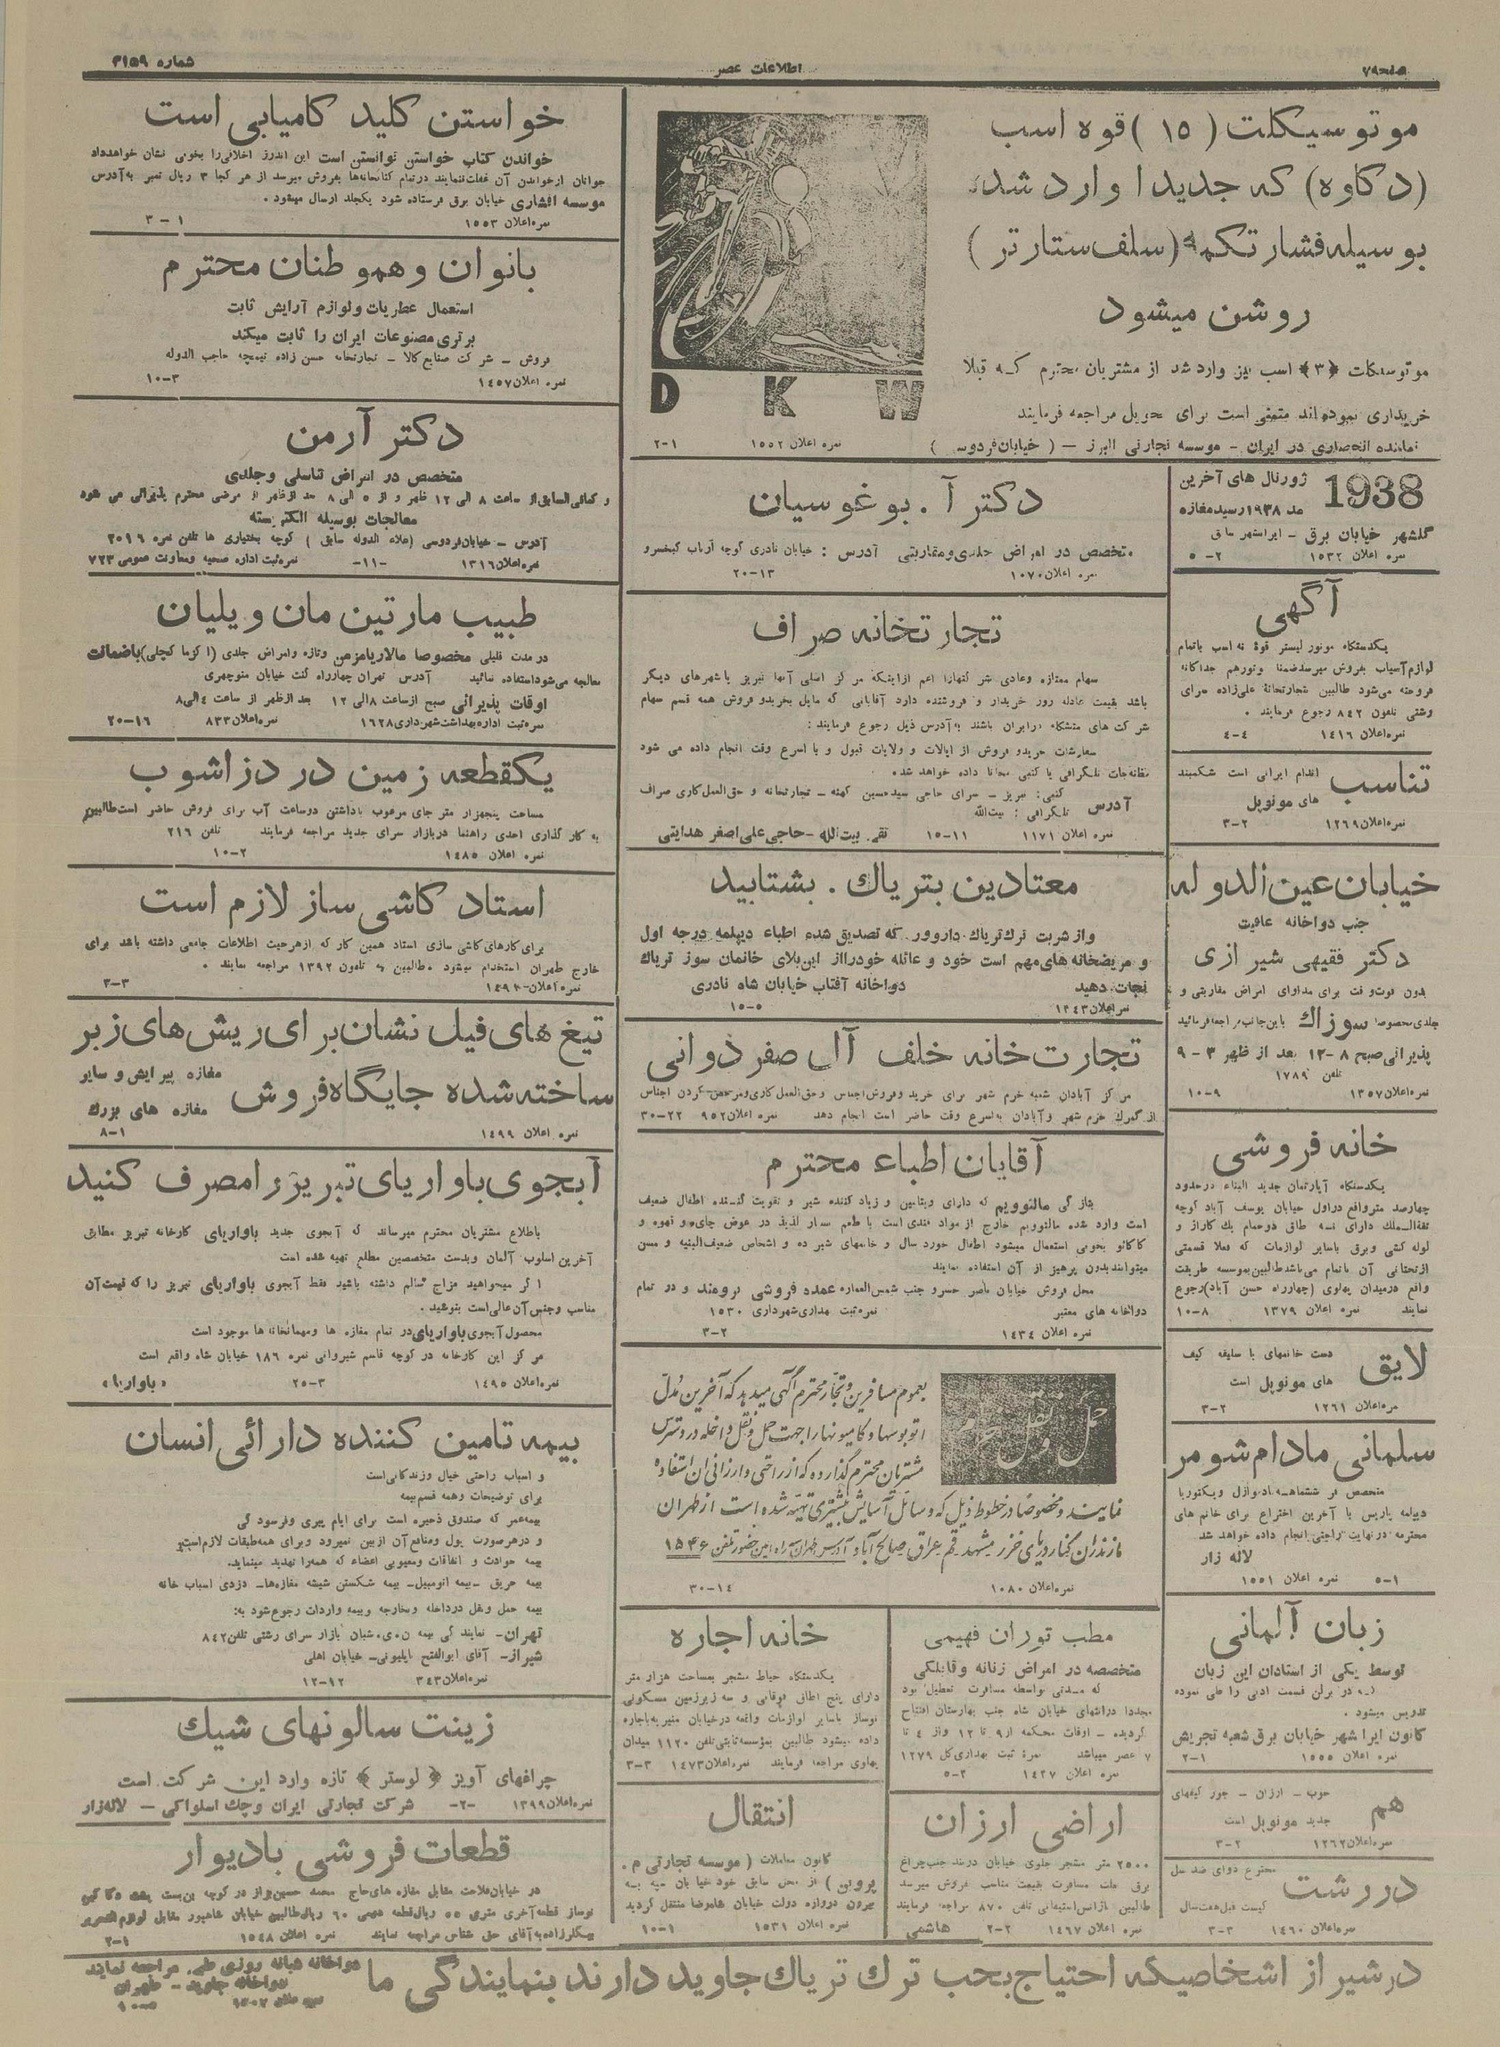 شماره ۳۱۵۹
اطلاعات عصر
صفحه ۷
موتوسیکلت ( ۱۵ ) قوه اسب
(دکاوه) که جدیدا وارد شده
بوسیله فشار تکمه (سلف ستارتر)
روشن میشود
موتوسیکلت ﴿۳﴾ اسب نیز وارد شد از مشتریان محترم که قبلا
خریداری نموده‌اند متمنی است برای تحویل مراجعه فرمایند
نماینده انحصاری در ایران - موسسه تجارتی البرز - ( خیابان فردوسی )
نمره اعلان ۱۵۵۲ ۱-۲
D K W
1938
ژورنال های آخرین
مد ۱۹۳۸ رسید مغازه
گلشهر خیابان برق - ایرانشهر سابق
نمره اعلان ۱۵۳۲ ۲-۵
آگهی
یکدستگاه موتور لیستر قوۀ نه اسب باتمام
لوازم آسیاب بفروش میرسد ضمنا موتور هم جداگانه
فروخته می‌شود طالبین بتجارتخانۀ علی‌زاده سرای
رشتی تلفون ۸۴۲ رجوع فرمایند .
نمره اعلان ۱۴۱۶ ۴-۴
تناسب
اندام ایرانی است شکمبند
های مونوپل
نمره اعلان ۱۲۶۹ ۲-۳
خیابان عین الدوله
جنب دواخانه عافیت
دکتر فقیهی شیرازی
بدون فوت وقت برای مداوای امراض مقاربتی و
جلدی مخصوصا سوزاك باین جانب مراجعه فرمائید
پذیرائی صبح ۸-۱۲ بعد از ظهر ۳-۹
تلفن ۱۷۸۹
نمره اعلان ۱۳۵۷ ۹-۱۰
خانه فروشی
یکدستگاه آپارتمان جدید البناء در حدود
چهارصد متر واقع در اول خیابان یوسف آباد کوچه
ثقة‌الملك دارای سه طاق دو حمام یك گاراژ و
لوله کشی و برق باسایر لوازمات که فعلا قسمتی
از تحتانی آن ناتمام می‌باشد طالبین بموسسه طریقت
واقع در میدان پهلوی (چهارراه حسن آباد) رجوع
نمایند نمره اعلان ۱۳۷۹ ۸-۱۰
لایق
دست خانمهای با سلیقه کیف
های مونوپل است
نمره اعلان ۱۲۶۱ ۲-۳
سلمانی مادام شومر
متخصص در ششماهه وازل و یکتوریا
دیپلمه پاریس با آخرین اختراع برای خانم های
محترمه در نهایت راحتی انجام داده خواهد شد
لاله زار
نمره اعلان ۱۵۵۱ ۱-۵
زبان آلمانی
توسط یکی از استادان این زبان
که در برلن قسمت ادبی را طی نموده
تدریس میشود .
کانون ایرانشهر خیابان برق شعبه تجریش
نمره اعلان ۱۵۵۵ ۱-۲
هم
خوب - ارزان - جور کیفهای
جدید مونوپل است
نمره اعلان ۱۲۶۲ ۲-۳
در رشت
مخترع دوای ضد سل
کیست قبل هفت سال
نمره اعلان ۱۴۶۰ ۳-۳
دکتر آ . بوغوسیان
متخصص در امراض جلدی و مقاربتی آدرس : خیابان نادری کوچه ارباب کیخسرو
نمره اعلان ۱۰۷۰ ۱۳-۲۰
تجارتخانه صراف
سهام ممتازه و عادی شرکتها را اعم از اینکه مرکز اصلی آنها تبریز یا شهرهای دیگر
باشد بقیمت عادله روز خریدار و فروشنده دارد آقایانی که مایل بخرید و فروش همه قسم سهام
شرکت های متشکله در ایران باشند به‌آدرس ذیل رجوع فرمایند :
سفارشات خرید و فروش از ایالات و ولایات قبول و با اسرع وقت انجام داده می شود
مظنه‌جات تلگرافی یا کتبی مجانا داده خواهد شد .
آدرس
کتبی: تبریز - سرای حاجی سیدحسین کهنه - تجارتخانه و حق‌العمل‌کاری صراف
تلگرافی : بیت‌الله
نمره اعلان ۱۱۷۱ ۱۱-۱۵ نقی بیت‌الله - حاجی علی اصغر هدایتی
معتادین بتریاك . بشتابید
و از شربت ترك‌تریاك داروور که تصدیق شده اطباء دیپلمه درجه اول
و مریضخانه‌های مهم است خود و عائله خود را از این بلای خانمان سوز تریاك
نجات دهید دواخانه آفتاب خیابان شاه نادری
نمره اعلان ۱۴۴۳ ۵-۱۵
تجارت خانه خلف آل صفر ذوانی
مرکز آبادان شعبه خرم شهر برای خرید و فروش اجناس و حق‌العمل‌کاری و مرخص کردن اجناس
از گمرك خرم شهر و آبادان به‌اسرع وقت حاضر است انجام دهد نمره اعلان ۹۵۲ ۲۲-۳۰
آقایان اطباء محترم
بتازگی مالتوویم که دارای ویتامین و زیاد کننده شیر و تقویت کننده اطفال ضعیف
است وارد شده مالتوویم خارج از مواد قندی است با طعم بسیار لذیذ در عوض چای و قهوه و
کاکائو بخوبی استعمال میشود اطفال خورد سال و خانمهای شیر ده و اشخاص ضعیف‌البنیه و مسن
میتوانند بدون پرهیز از آن استفاده نمایند
محل فروش خیابان ناصر خسرو جنب شمس‌العماره عمده فروشی برومند و در تمام
دواخانه های معتبر نمره ثبت بهداری شهرداری ۱۵۳۰
نمره اعلان ۱۴۳۴ ۲-۳
حمل و نقل
بعموم مسافرین و تجار محترم آگهی میدهد که آخرین مدل
اتوبوسها و کامیونها را جهت حمل و نقل داخله در دسترس
مشتریان محترم گذارده که از راحتی و ارزانی آن استفاده
نمایند و مخصوصا در خطوط ذیل که وسائل آسایش بیشتری تهیه شده است از طهران
مازندران کنار دریای خزر مشهد قم عراق صالح آباد
تلفن ۱۵۴۶
نمره اعلان ۱۰۸۰ ۱۴-۳۰
مطب توران فهیمی
متخصصه در امراض زنانه و قابلگی
که مدتی بواسطه مسافرت تعطیل بود
مجددا در انتهای خیابان شاه جنب بهارستان افتتاح
گردیده - اوقات محکمه از ۹ تا ۱۲ و از ۴ تا
۷ عصر میباشد نمرۀ ثبت بهداری کل ۱۲۷۹
نمره اعلان ۱۴۲۷ ۲-۵
اراضی ارزان
۲۵۰۰ متر مشجر جلوی خیابان دربند جنب چراغ
برق علت مسافرت بقیمت مناسب فروش میرسد
طالبین باژانس استیفانی تلفن ۸۷۰ مراجعه فرمایند
نمره اعلان ۱۴۶۷ ۲-۲ هاشمی
خانه اجاره
یکدستگاه حیاط مشجر بمساحت هزار متر
دارای پنج اطاق فوقانی و سه زیرزمین مسکونی
نوساز باسایر لوازمات واقعه در خیابان منیریه باجاره
داده میشود طالبین بمؤسسه ثابتی تلفن ۱۱۲۰ میدان
پهلوی مراجعه فرمایند نمره اعلان ۱۴۷۳ ۳-۳
انتقال
کانون معاملات ( موسسه تجارتی م .
پروین ) از محل سابق خود خیابان
بیرون دروازه دولت خیابان شاهرضا منتقل گردید
نمره اعلان ۱۵۳۱ ۱-۱۰
خواستن کلید کامیابی است
خواندن کتاب خواستن توانستن است این اندرز اخلاقی را بخوبی نشان خواهد داد
جوانان از خواندن آن غفلت ننمایند در تمام کتابخانه‌ها بفروش میرسد از هر کجا ۳ ریال تمبر به آدرس
موسسه افشاری خیابان برق فرستاده شود یکجلد ارسال میشود .
نمره اعلان ۱۵۵۳ ۱-۳
بانوان و هموطنان محترم
استعمال عطریات و لوازم آرایش ثابت
برتری مصنوعات ایران را ثابت میکند
فروش - شرکت صنایع کالا - تجارتخانه حسن زاده تیمچه حاجب الدوله
نمره اعلان ۱۴۵۷ ۳-۱۰
دکتر آرمن
متخصص در امراض تناسلی و جلدی
و کمافی‌السابق از ساعت ۸ الی ۱۲ ظهر و از ۵ الی ۸ بعد از ظهر از مرضی محترم پذیرائی می شود
معالجات بوسیله الکتریسته
آدرس - خیابان فردوسی (علاء الدوله سابق ) کوچه بختیاری ها تلفن نمره ۲۰۱۶
نمره اعلان ۱۳۱۶ -۱۱- نمره ثبت اداره صحیه و معاونت عمومی ۷۲۳
طبیب مارتین مان ویلیان
در مدت قلیلی مخصوصا مالاریا مزمن و تازه و امراض جلدی (اکزما کچلی) باضمانت
معالجه می‌شود استفاده نمائید آدرس تهران چهارراه کنت خیابان منوچهری
اوقات پذیرائی صبح از ساعت ۸ الی ۱۲ بعد از ظهر از ساعت ۴ الی ۸
نمره ثبت اداره بهداشت شهرداری ۱۶۲۸ نمره اعلان ۸۳۳ ۱۶-۲۰
یکقطعه زمین در دزاشوب
مساحت پنجهزار متر جای مرغوب با داشتن دو ساعت آب برای فروش حاضر است طالبین
به کارگذاری احدی راهنما در بازار سرای جدید مراجعه فرمایند تلفن ۲۱۶
نمره اعلان ۱۴۸۵ ۲-۱۰
استاد کاشی ساز لازم است
برای کارهای کاشی سازی استاد همین کار که از هر حیث اطلاعات جامعی داشته باشد برای
خارج طهران استخدام میشود . طالبین به تلفون ۱۳۹۲ مراجعه نمایند .
۳-۳
تیغ های فیل نشان برای ریش های زبر
ساخته شده جایگاه فروش
مغازه پیرایش و سایر
مغازه های بزرك
نمره اعلان ۱۴۹۹ ۱-۸
آبجوی باواریای تبریز را مصرف کنید
باطلاع مشتریان محترم میرساند که آبجوی جدید باواریای کارخانه تبریز مطابق
آخرین اسلوب آلمان و بدست متخصصین مطلع تهیه شده است
اگر میخواهید مزاج سالم داشته باشید فقط آبجوی باواریای تبریز را که قیمت آن
مناسب و جنس آن عالی است بنوشید .
محصول آبجوی باواریای در تمام مغازه ها و مهمانخانه ها موجود است
مرکز این کارخانه در کوچه قاسم شیروانی نمره ۱۸۶ خیابان شاه واقع است
نمره اعلان ۱۴۹۵ ۳-۲۵ «باواریا»
بیمه تامین کننده دارائی انسان
و اسباب راحتی خیال و زندگانی است
برای توضیحات و همه قسم بیمه
بیمه عمر که صندوق ذخیره است برای ایام پیری و فرسودگی
و در هر صورت پول و منافع آن از بین نمیرود و برای همه طبقات لازم است
بیمه حوادث و اتفاقات و معیوبی اعضاء که همه را تهدید مینماید.
بیمه حریق - بیمه اتومبیل - بیمه شکستن شیشه مغازه‌ها - دزدی اسباب خانه
بیمه حمل و نقل در داخله و خارجه و بیمه واردات رجوع شود به:
تهران - نمایندگی بیمه ن.ی. شبان بازار سرای رشتی تلفن ۸۴۲
شیراز - آقای ابوالفتح بابلیونی - خیابان اهلی
نمره اعلان ۳۴۳ ۱۲-۱۲
زینت سالونهای شیك
چراغهای آویز ﴿ لوستر ﴾ تازه وارد این شرکت است
نمره اعلان ۱۳۹۹ -۲- شرکت تجارتی ایران و چك اسلواکی - لاله‌زار
قطعات فروشی بادیوار
در خیابان فلاحت مقابل مغازه های حاج محمد حسین بزاز در کوچه بن‌بست
نوساز قطعه آخری متری ۵۵ ریال قطعه دهمی ۶۰ ریال طالبین خیابان شاهپور مقابل لوازم‌التحریر
بیگلرزاده به آقای حق شناس مراجعه نمایند نمره اعلان ۱۵۴۸ ۱-۲
در شیراز اشخاصیکه احتیاج بحب ترك تریاك جاوید دارند بنمایندگی ما
دواخانه شبانه روزی ملی مراجعه نمایند
دواخانه جاوید - طهران